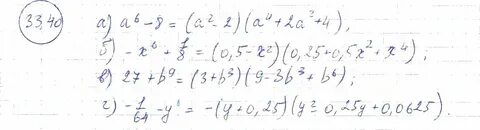 33.40
а) a⁶ - 8 = (a² - 2)(a⁴ + 2a² + 4),
б) -x⁶ + 1/8 = (0,5 - x²)(0,25 + 0,5x² + x⁴);
в) 27 + b⁹ = (3 + b³)(9 - 3b³ + b⁶);
г) -1/64 - y³ = -(y + 0,25)(y² - 0,25y + 0,0625).